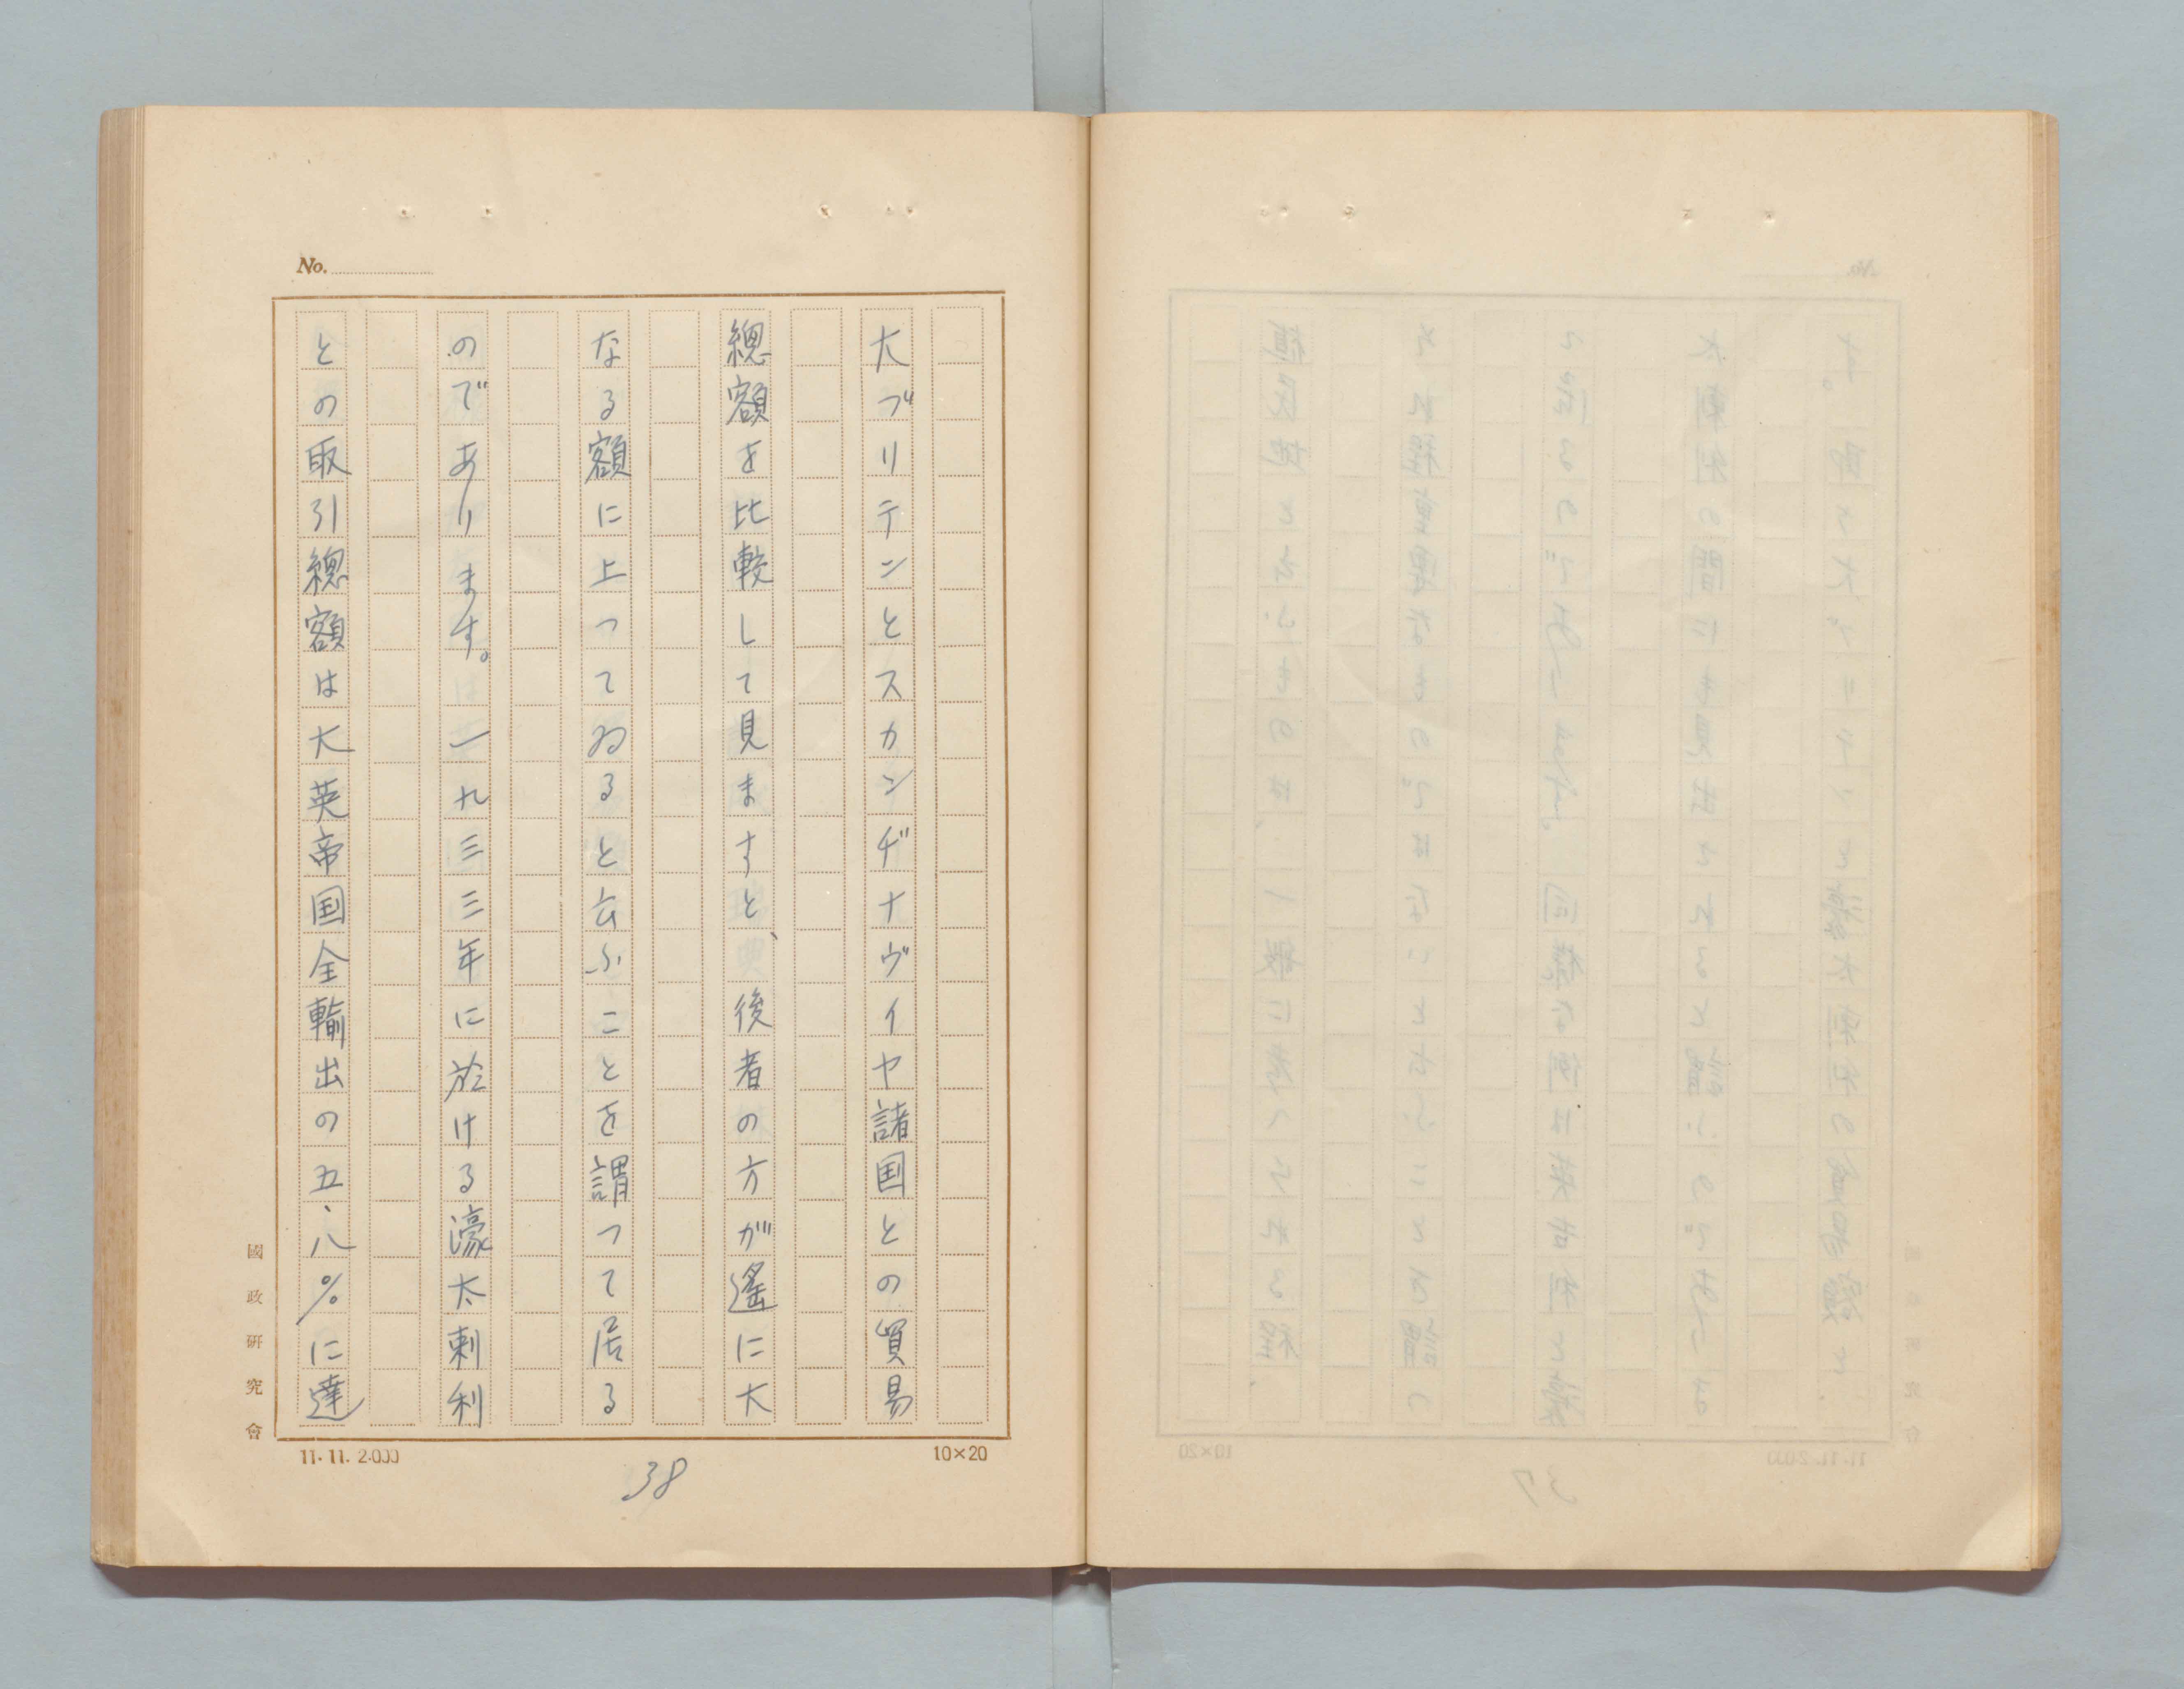 No.
大ブリテンとスカンヂナヴイヤ諸国との貿易
總額を比較して見ますと、後者の方が遙に大
なる額に上つてゐると云ふことを謂つて居る
のであります。一九三三年に於ける濠太剌利
との取引總額は大英帝国全輸出の五、八%に達
國政研究會
11.11.2.000
10×20
38